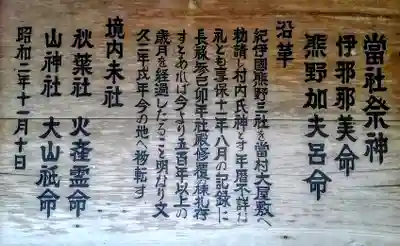 當社祭神
伊邪那美命
熊野加夫呂命
沿革
紀伊國熊野三社を當村大屋敷へ
勧請し村内氏神とす年歴不詳な
れとも享保十二年八月の記録に
長禄癸己卯年社殿修覆棟札存
すとあれば今より五百年以上の
歳月を経過したること明かなり文
久二年戌年今の地へ移転す
境内末社
秋葉社 火産霊命
山神社 大山祇命
昭和二年十一月十日